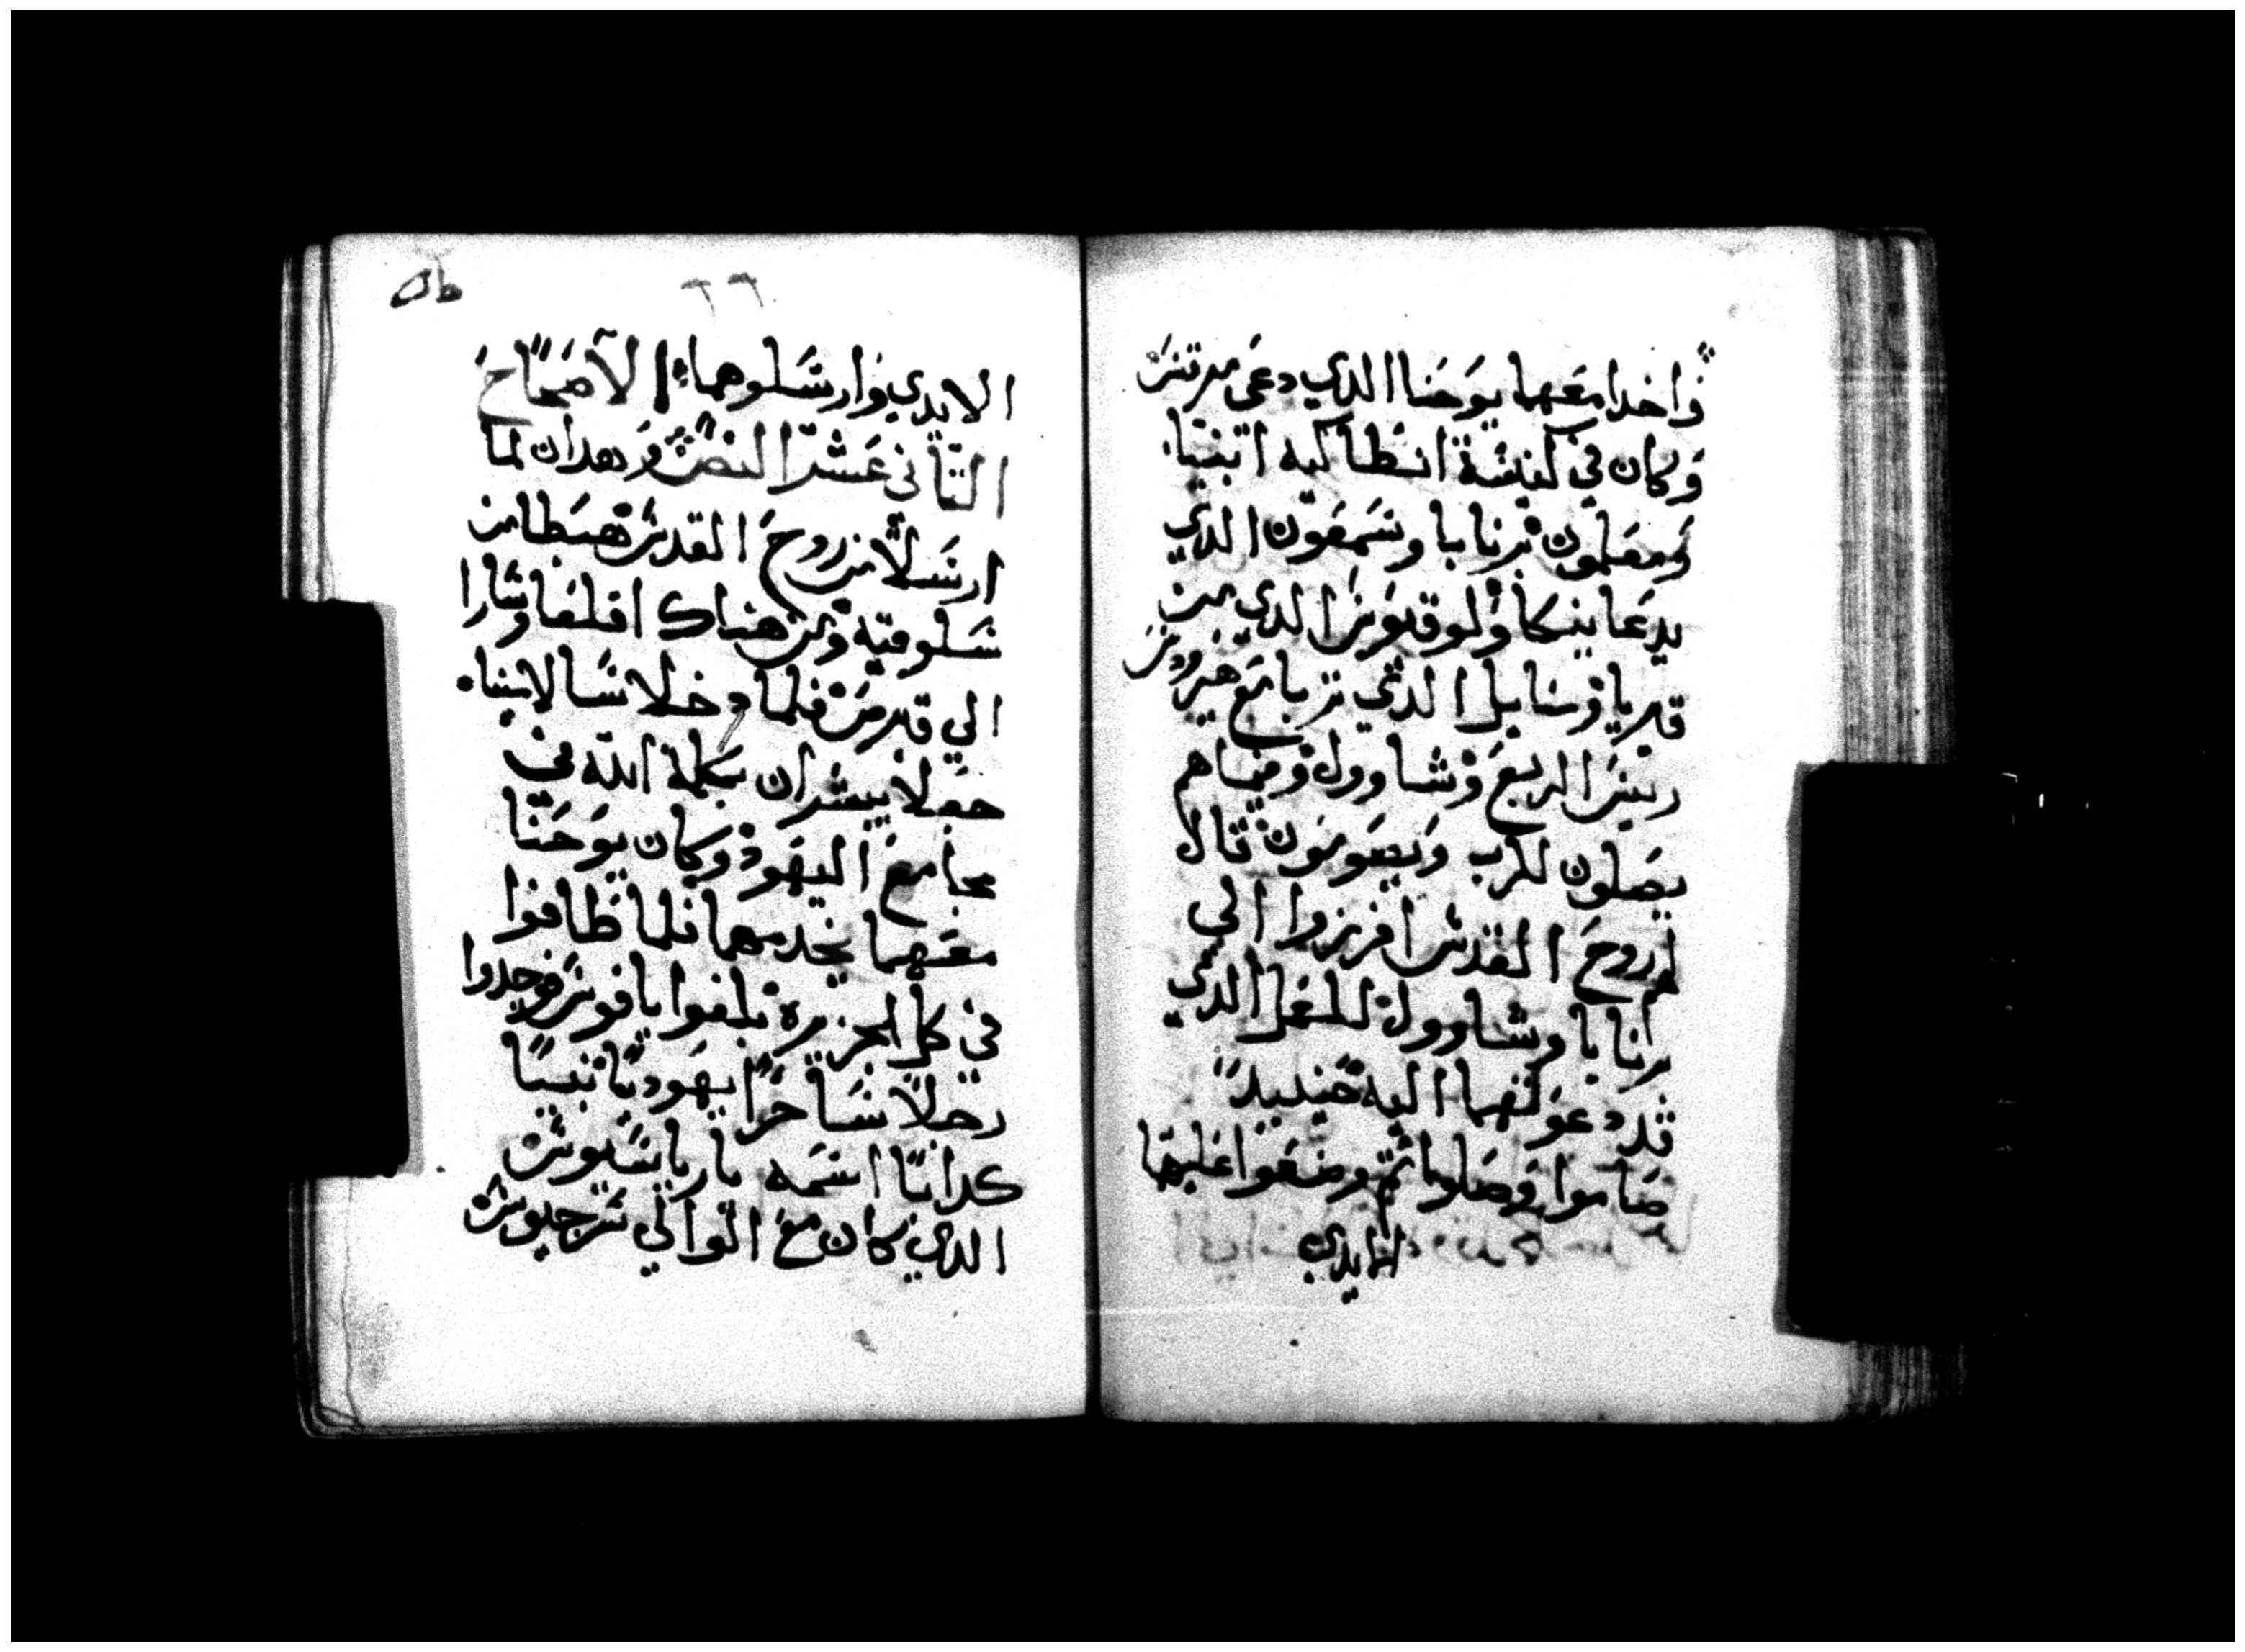 واخدا معهما يوحنا الدي دعى مرتس
وكان في كنيسة انطاكيه انبيا
ومعلمون برنابا وشمعون الدي
يدعا نيكا ولوقيوس الدي من
قبريا وسايل الدي تربا مع هيرودس
ريس الربع وشاوول وفيماهم
يصلون للرب ويصومون قال
لهم روح القدس افرزوا الي
برنابا وشاوول للعمل الدي
قد دعوتهما اليه حينيد
صاموا وصلوا ثم وضعوا عليهما
الايدي
٦٦
الايدي وارسلوهما الاصحاح
التاني عشر النص وهدان لما
ارسلا من روح القدس هبطا من
سلوقيه ومن هناك اقلعا وسارا
الي قبرص فلما دخلا سالامينا
جعلا يبشران بكلمة الله في
مجامع اليهود وكان يوحنا
معهما يخدمهما فلما طافوا
في كل الجزيره بلغوا يافوس فوجدوا
رجلا ساحرا يهوديا نبيا
كدابا اسمه باريا يشيوش
الدي كان مع الوالي سرجيوس